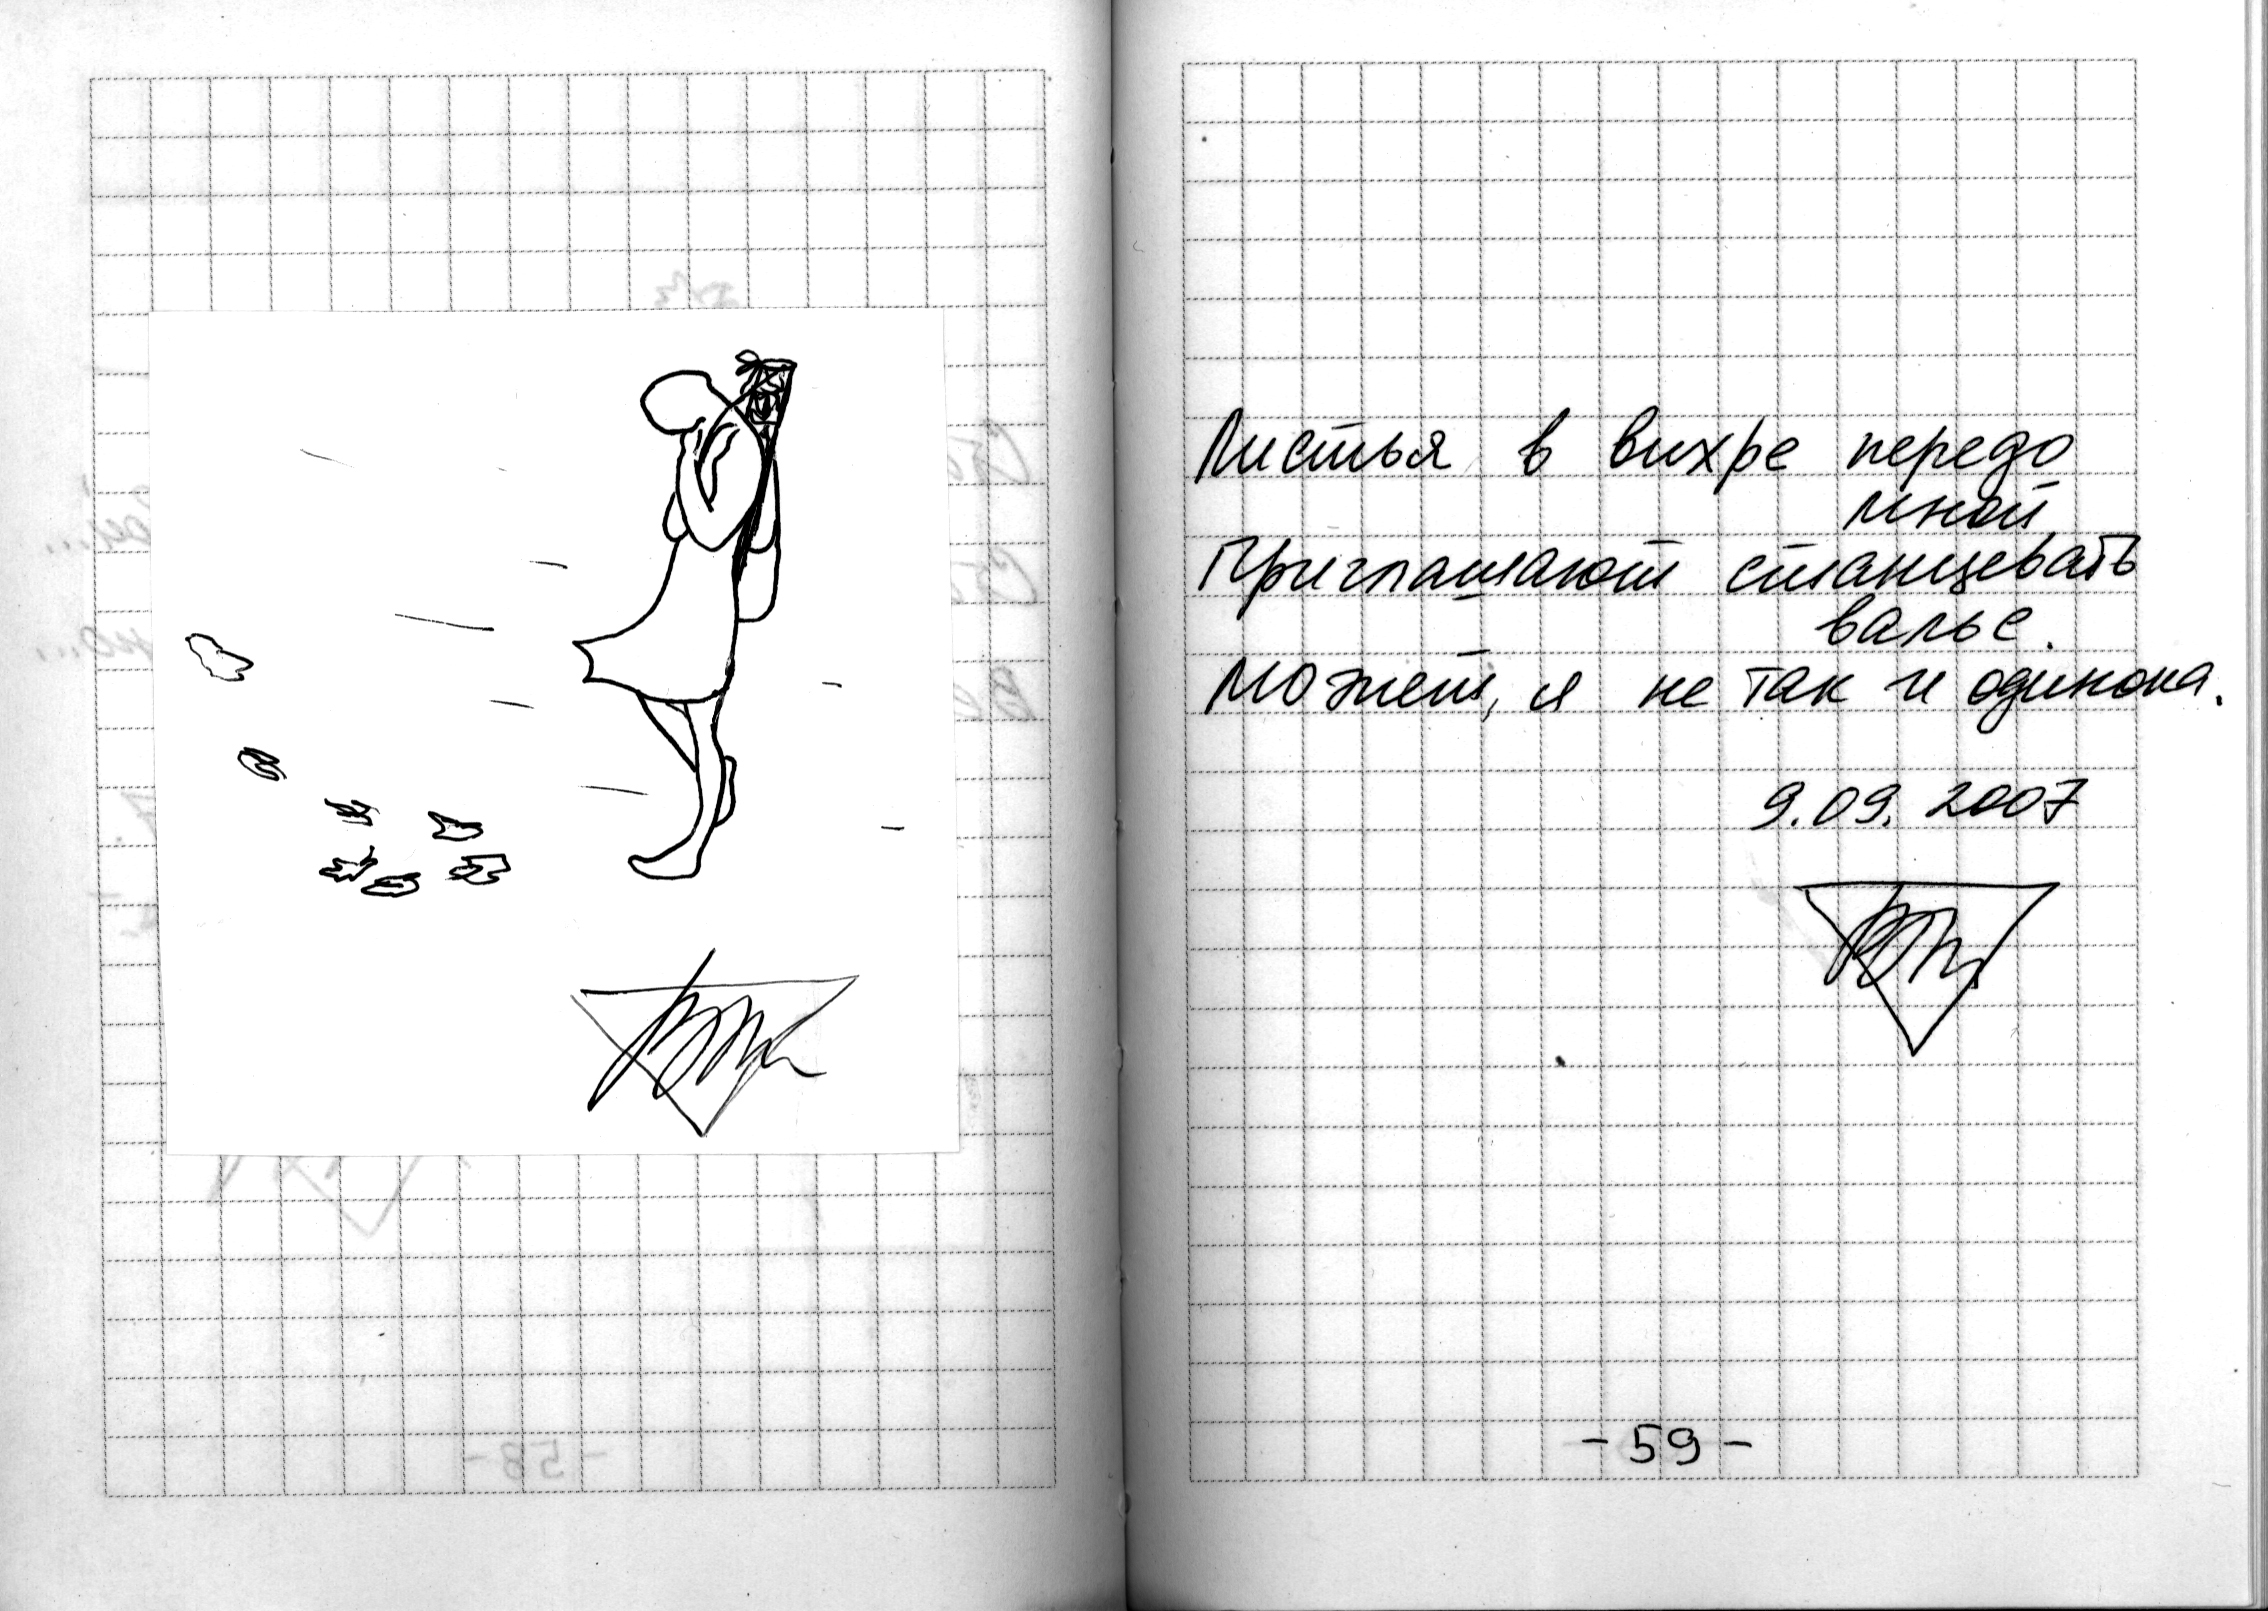 Листья в вихре передо
мной
Приглашают станцевать
вальс.
Может, я не так и одинока.
9.09.2007
- 59 -